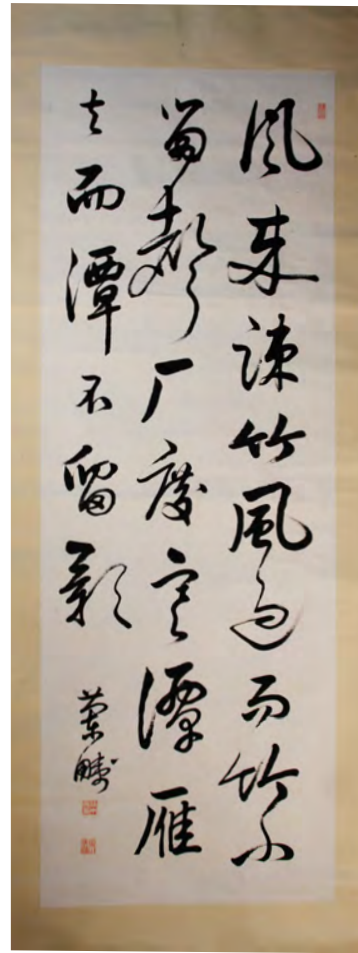 風来疎竹風過而竹不
留聲厂度寒潭雁
去而潭不留影
蘭